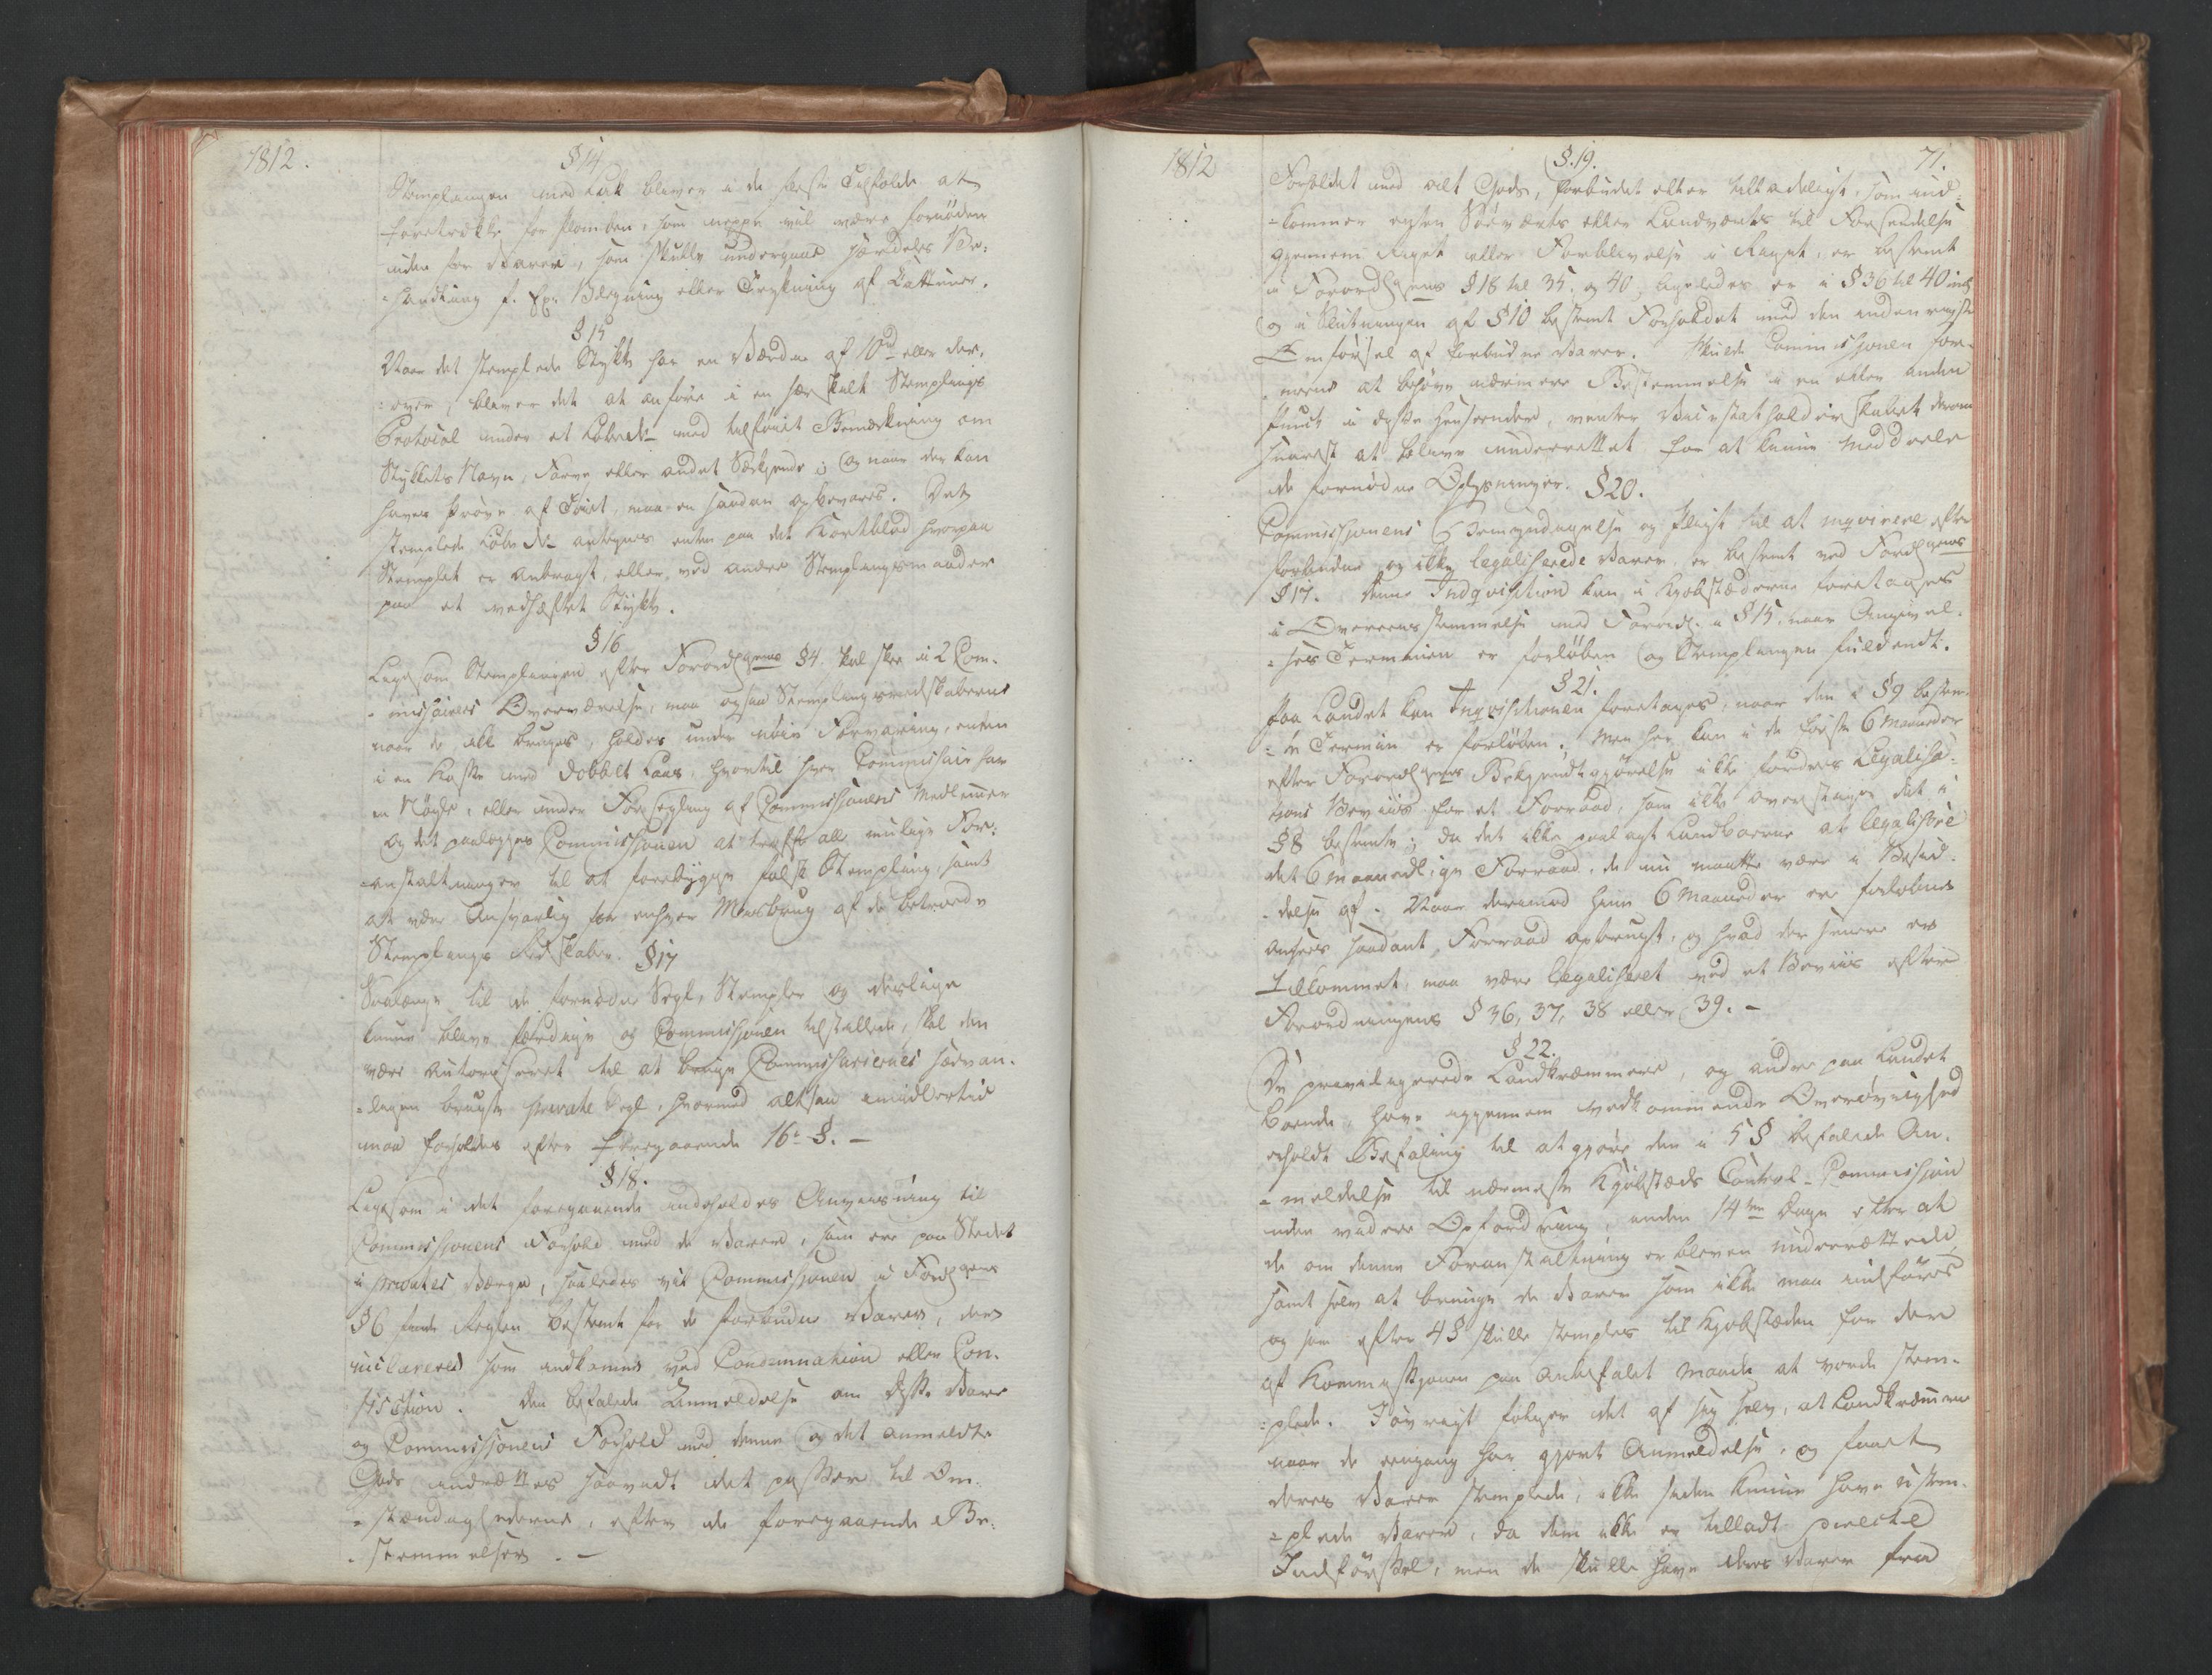 1812.
§ 14
Stemplingen med Lak bliver i de fleste Tilfælde at
foretrække for Plomben, som neppe vil være fornøden
uden for Varer, som skulle undergaae særdeles Be-
-handling f. Ex. Blegning eller Trykning af Cattuner.
§ 15
Naar det stemplede Stykke har en Værdie af 10 rd eller der-
-over, bliver det at anføre i en særskilt Stemplings
Protocol under et Løbe No med tilføiet Bemærkning om
Stykkets Navn, Farve eller andet Særkjende; og naar der kan
haves Prøve af Tøiet, maa en saadan opbevares. Det
stemplede Løbe No antegnes enten paa det Kortblad hvorpaa
Stemplet er anbragt, eller ved andre Stemplingsmaader
paa et vedhæftet Stykke.
§ 16
Ligesom Stemplingen efter Forordgens § 4. skal skee i 2 Com-
-missairers Overværelse, maa ogsaa Stemplingsredskaberne
naar de ikke bruges, holdes under nøie Forvaring, enten
i en Kasse med dobbelt Laas, hvortil hver Commissair har
en Nøgle, eller under Forsegling af Commissionens Medlemmer
og det paalægges Commissionen at træffe alle mulige For-
-anstaltninger til at forebygge falsk Stempling, samt
at være Ansvarlig for enhver Misbrug af de betroede
Stemplings Redskaber. § 17
Saalænge til de fornødne Segl, Stempler og deslige
kunne blive færdige og Commissionen tilstillede, skal den
være autoriseret til at bruge Commissariernes sædvan-
-ligen brugte private Segl, hvormed altsaa imidlertid
maa forholdes efter foregaaende 16de §. -
§ 18.
Ligesom i det foregaaende indeholdes Anviisning til
Commissionens Forhold med de Varer, som ere paa Stedet
i privates Værge, saaledes vil Commissionen i Fordgens
§ 6 finde Reglen bestemt for de forbudne Varer, der
uclareret som indkomne ved Condemnation eller Con-
fiscation. Den befalede Anmeldelse om disse Varer
og Commissionens Forhold med denne og det anmeldte
Gods indrettes saavidt det passer til Om-
-stændighederne, efter de foregaaende Be-
-stemmelser. -
1812
§. 19.
71.
Forholdet med alt Gods, forbudet eller tilladeligt, som ind-
-kommer enten Søeværts eller Landværts til Forsendelse
gjennem Riget eller Forblivelse i Riget, er bestemt
i Forordgens § 18 til 35. og 40, ligeledes er i § 36 til 40 incl
og i Slutningen af § 10 bestemt Forholdet med den indenrigske
Omførsel af forbudne Varer. Skulde Commissionen for-
-meene at behøve nærmere Bestemmelse i en eller anden
Punct i disse Henseender, venter Vicestatholderskabet derom
snarest at blive underrettet for at kunne meddeele
de fornødne Oplysninger. § 20.
Commissionens Bemyndigelse og Pligt til at inqvirere efter
forbudne og ikke legaliserede Varer, er bestemt ved Fordgens
§ 17. Denne Indqvisition kan i Kjøbstæderne foretages
i Overeensstemmelse med Forordg. § 15, naar Angivel-
-ses Terminen er forløben og Stemplingen fuldendt.
§ 21.
Paa Landet kan Inqvisitionen foretages, naar den i § 9 bestem-
-te Termin er forløben. Men her kan i de første 6 Maaneder
efter Forordgens Bekjendtgjørelse ikke fordres Legalisa-
tions Beviis for et Forraad, som ikke overstiger det i
§ 8 bestemte; da det ikke paalagt Landboerne at legalisere
det 6 maanedlige Forraad, de nu maatte være i Besid-
-delse af. Naar derimod hine 6 Maaneder ere forløbne
ansees saadant Forraad opbrugt, og hvad der senere er
tilkommet, maa være legaliseret ved et Beviis efter
Forordningens § 36, 37, 38 eller 39. -
§ 22.
De privilegerede Landkræmmere, og andre paa Landet
boende, have igjennem vedkommende Overøvrighed
erholdt Befaling til at gjøre den i 5 § befalede An-
-meldelse til nærmeste Kjøbstæds Control-Commission
uden videre Opfordring, inden 14ten Dage efter at
de om denne Foranstaltning er bleven underrettede,
samt selv at bringe de Varer som ikke maa indføres
og som efter 4 § skulle stemples til Kjøbstæden for der
af Kommissionen paa anbefalet Maade at vorde stem-
-plede. Iøvrigt følger det af sig selv, at Landkræmmere
naar de eengang har gjort Anmeldelse, og faaet
deres Varer stemplede, ikke siden kunne have ustem-
-plede Varer, da dem ikke er tilladt directe
Indførsel, men de skulle have deres Varer fra